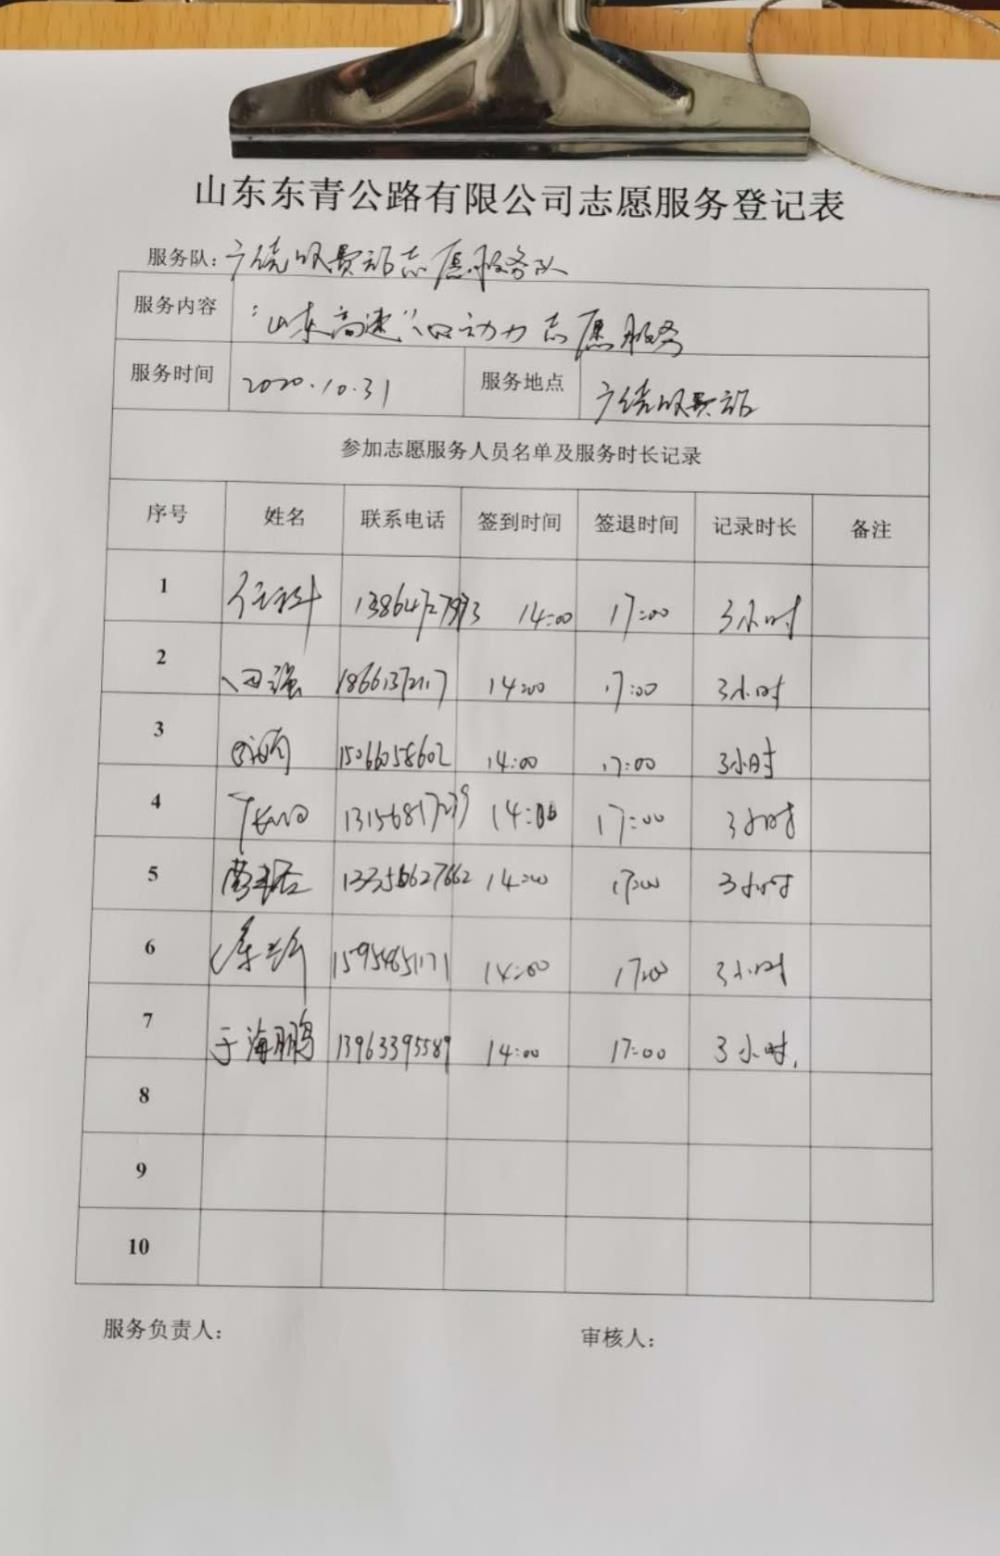 山东东青公路有限公司志愿服务登记表
服务队: 广饶收费站志愿服务队
服务内容 "山东高速" 心动力志愿服务
服务时间 2020.10.31 服务地点 广饶收费站
参加志愿服务人员名单及服务时长记录
序号 姓名 联系电话 签到时间 签退时间 记录时长 备注
1 14:00 17:00 3小时
2 14:00 17:00 3小时
3 15066058602 14:00 17:00 3小时
4 13156817239 14:00 17:00 3小时
5 14:00 17:00 3小时
6 14:00 17:00 3小时
7 于海鹏 13963395589 14:00 17:00 3小时.
8
9
10
服务负责人: 审核人: